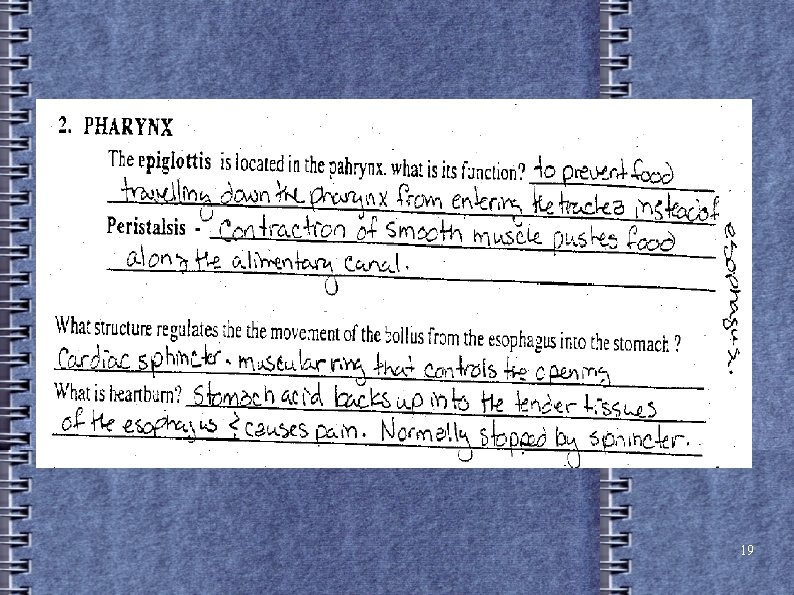 2. PHARYNX
The epiglottis is located in the pahrynx. what is its function? to prevent food
travelling down the pharynx from entering the trachea instead of
esophagus.
Peristalsis - Contraction of smooth muscle pushes food
along the alimentary canal.
What structure regulates the the movement of the bollus from the esophagus into the stomach ?
Cardiac sphincter. muscular ring that controls the opening
What is heartburn? Stomach acid backs up into the tender tissues
of the esophagus & causes pain. Normally stopped by sphincter.
19